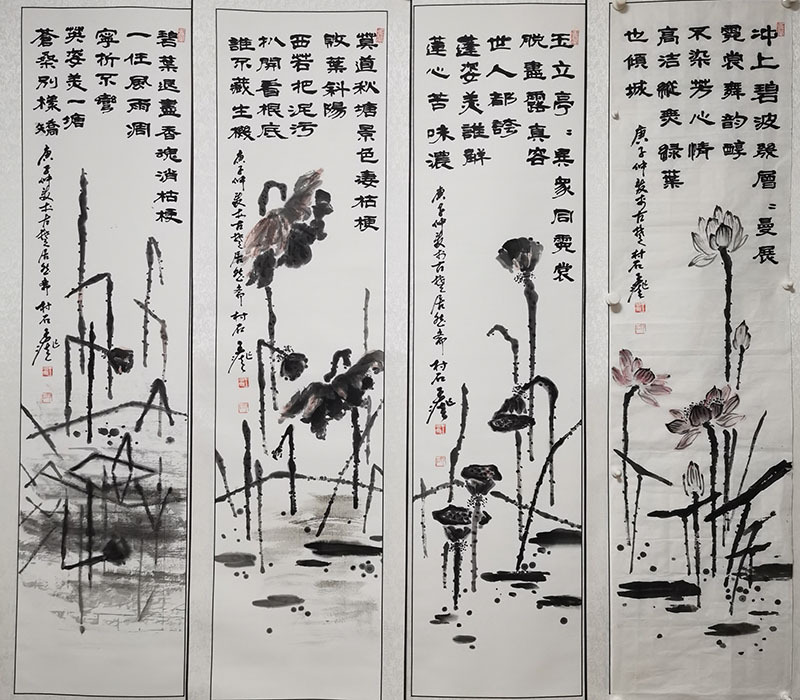 冲上碧波幾層〻曼展
霓裳舞韵醇
不染芳心情
高洁縱緑葉
也傾城
庚子仲夏於古楚村石
玉立亭〻眾同霓裳
脱盡露真容
世人都誇
蓬姿美誰解
蓮心苦味濃
庚子仲夏於古楚居然斋村石
莫道秋塘景色凄枯梗
敗葉斜陽
西若把泥污
扒開看根底
誰不藏生機
庚子仲夏於古楚居然斋村石
碧葉退盡香魂消枯梗
一任風雨凋
寧折不彎
英姿美一塘
蒼桑別樣嬌
庚子仲夏於古楚居然斋村石